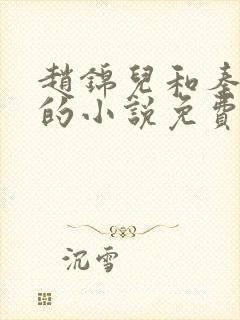 趙錦兒和秦
的小說免費
沉雪